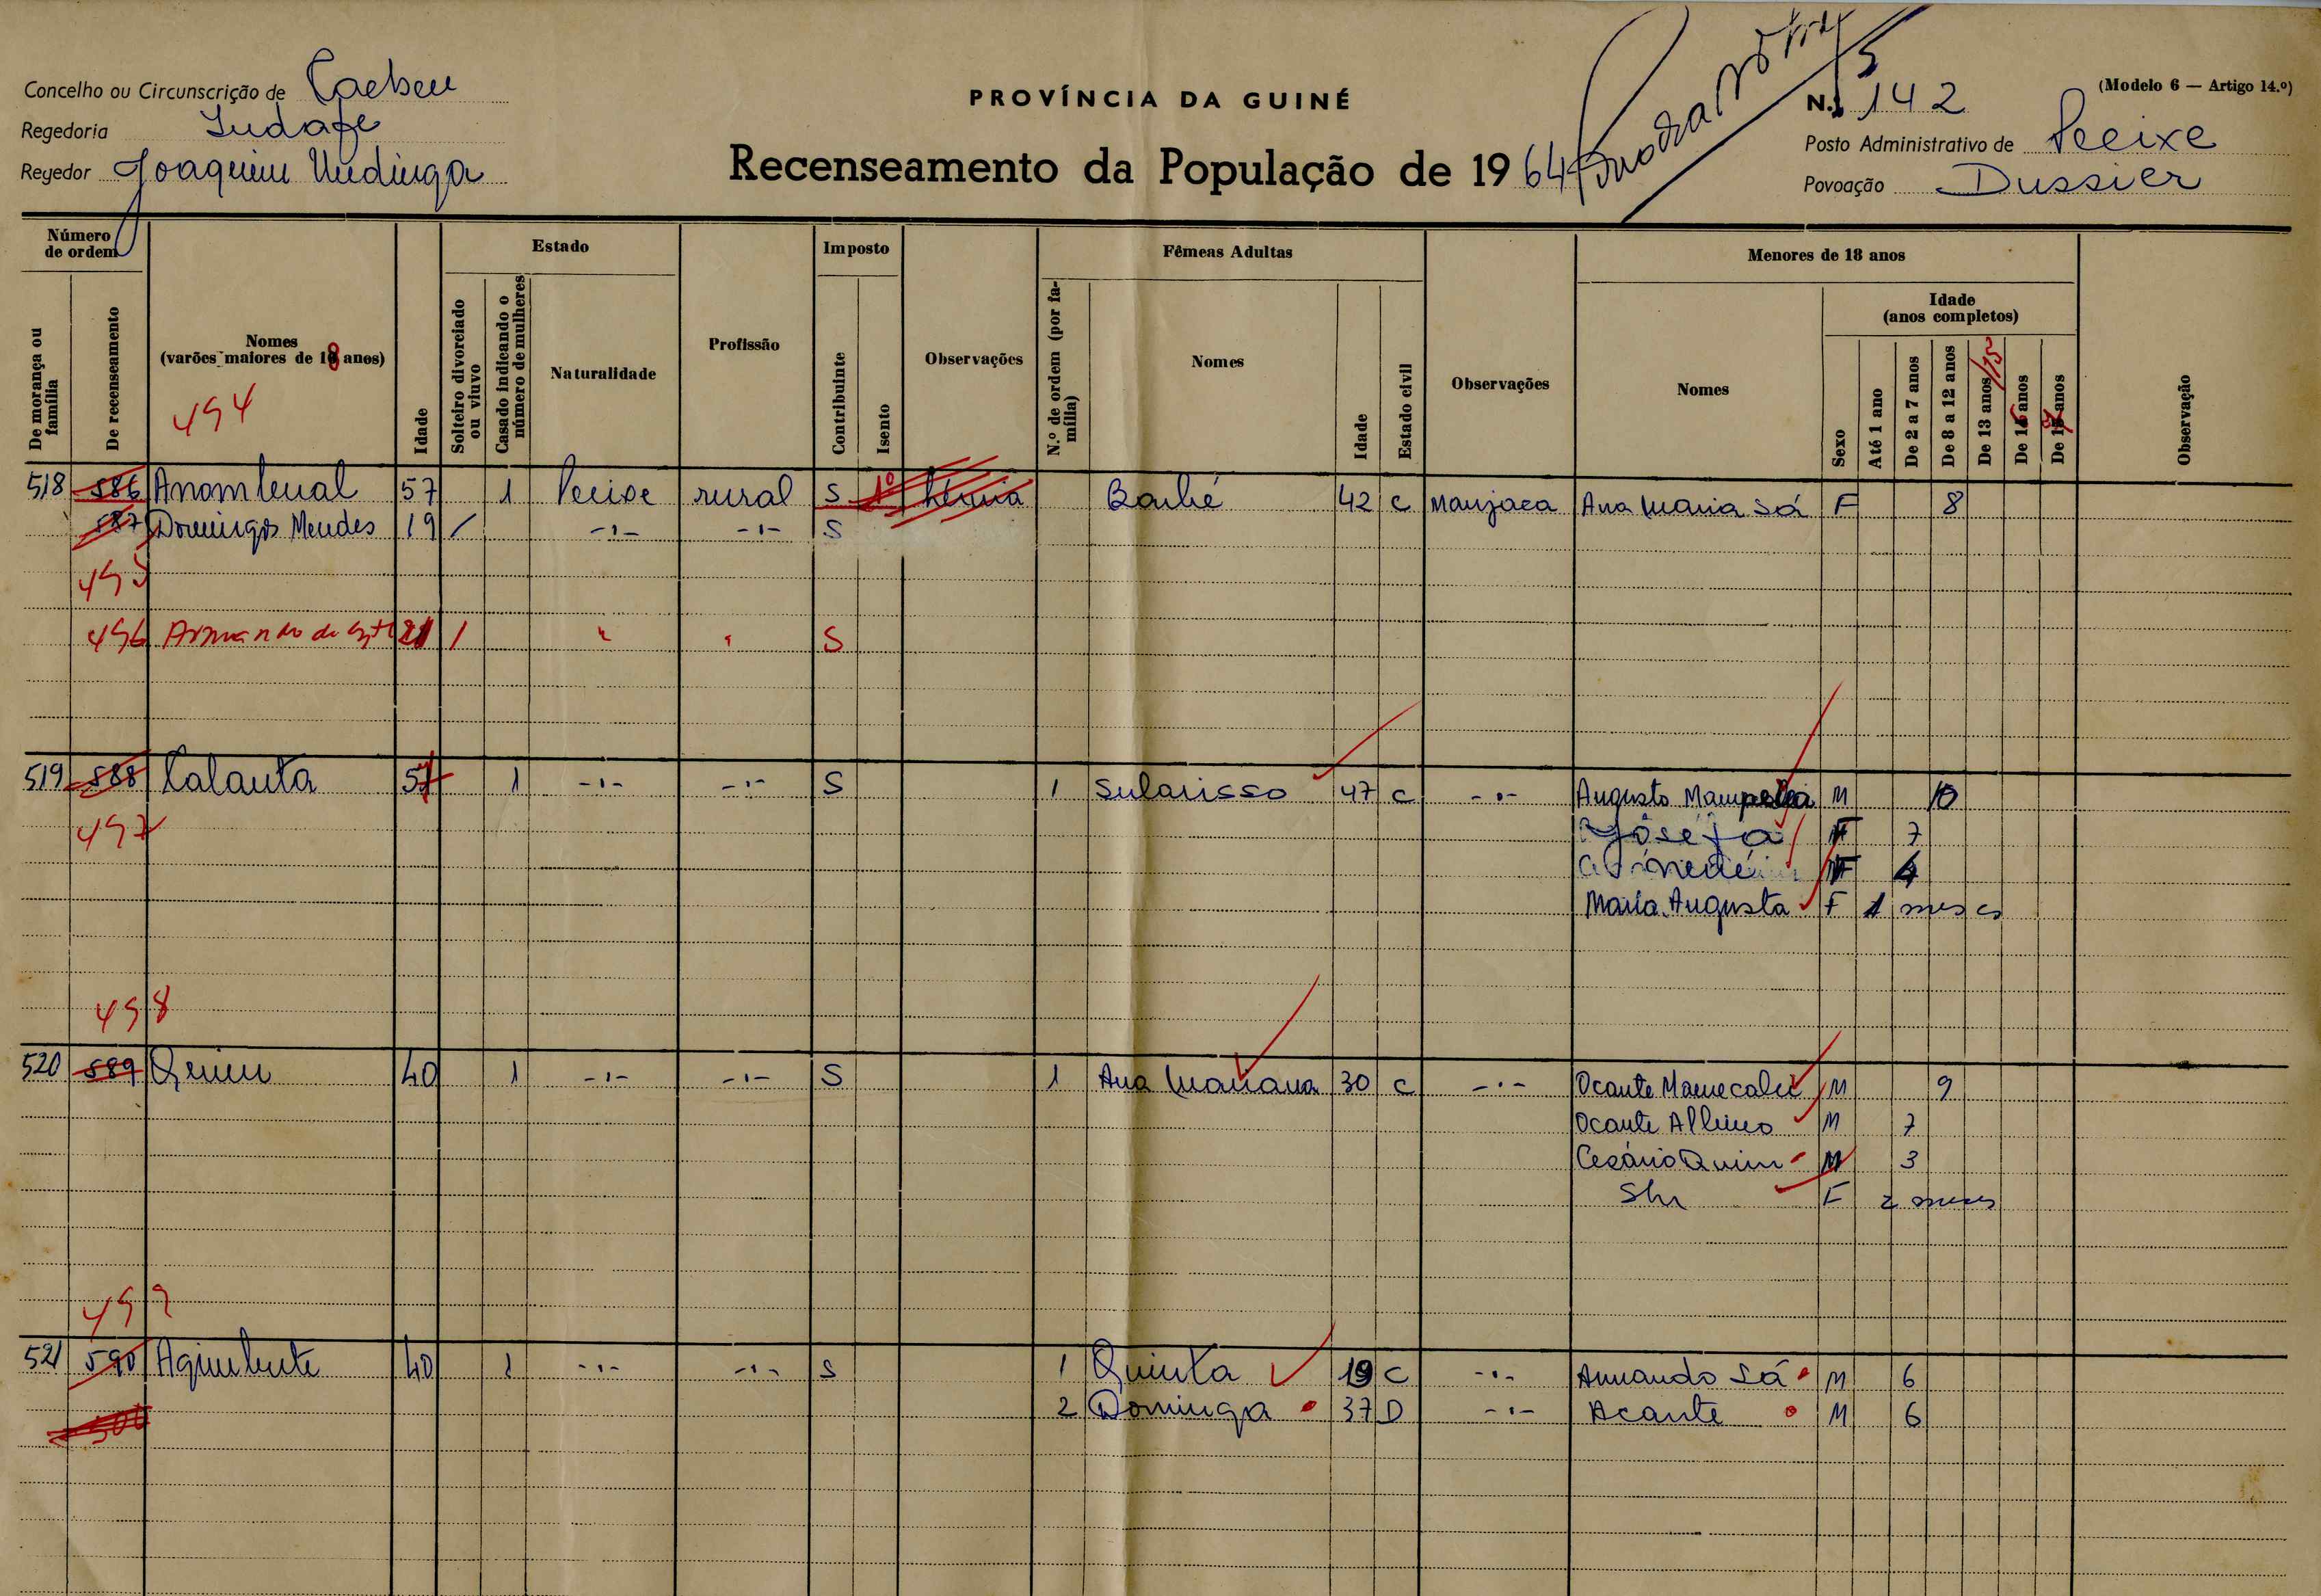 Concelho ou Circunscrição de Cacheu
Regedoria Indafe
Regedor Joaquim Undinga
PROVÍNCIA DA GUINÉ
Recenseamento da População de 1964
(Modelo 6 — Artigo 14.º)
N.º 142
Posto Administrativo de Pecixe
Povoação Dussier
Número de ordem
De morança ou família
De recenseamento
Nomes
(varões maiores de 18 anos)
494
Idade
Estado
Solteiro divorciado ou viuvo
Casado indicando o número de mulheres
Naturalidade
Profissão
Imposto
Contribuinte
Isento
Observações
Fêmeas Adultas
N.º de ordem (por família)
Nomes
Idade
Estado civil
Observações
Menores de 18 anos
Nomes
Idade
(anos completos)
Sexo
Até 1 ano
De 2 a 7 anos
De 8 a 12 anos
De 13 anos /15
De 16 anos
De 17 anos
Observação
518 586 57 1 Pecixe rural S 1º hérnia Barbé 42 C Manjaca Ana Maria Sá F 8
587 Domingos Mendes 19 / -"- -"- S
495
496 Armando de 21 / " " S
519 588 Calanta 57 1 -"- -"- S 1 Sularisso 47 C -"- Augusto M 10
497 Josefa F 7
F 4
Maria Augusta F 1 meses
498
520 589 Quim 40 1 -"- -"- S 1 Ana Mariana 30 C -"- Ocante Mamecalu M 9
Ocante Albino M 7
Cesário Quim M 3
F 2 meses
499
521 590 40 1 -"- -"- S 1 Quinta 19 C -"- Armando Sá M 6
500 2 Dominga 37 D -"- Acante M 6